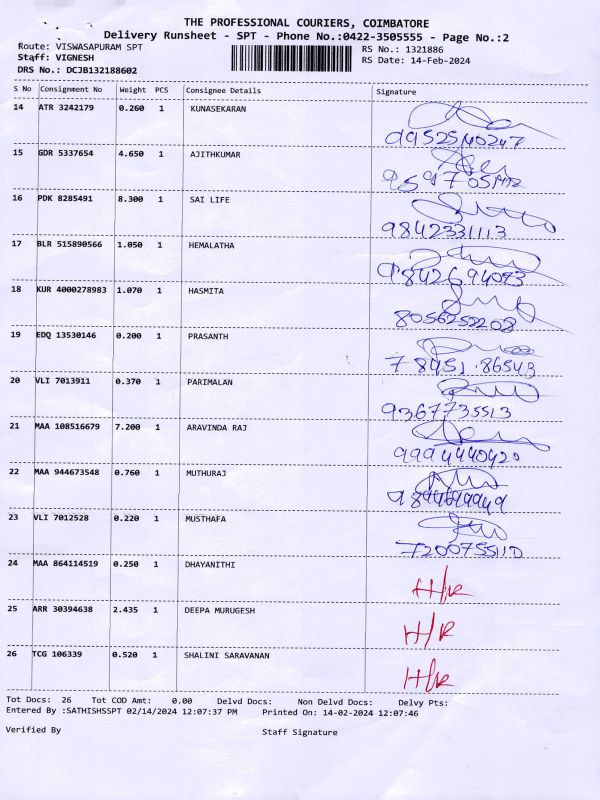 THE PROFESSIONAL COURIERS, COIMBATORE
Delivery Runsheet - SPT - Phone No.:0422-3505555 - Page No.:2
Route: VISWASAPURAM SPT RS No.: 1321886
Staff: VIGNESH RS Date: 14-Feb-2024
DRS No.: DCJB132188602
S No Consignment No Weight PCS Consignee Details Signature
14 ATR 3242179 0.260 1 KUNASEKARAN
9952540247
15 GDR 5337654 4.650 1 AJITHKUMAR
16 PDK 8285491 8.300 1 SAI LIFE
9842331113
17 BLR 515890566 1.050 1 HEMALATHA
9842694073
18 KUR 4000278983 1.070 1 HASMITA
8056252208
19 EDQ 13530146 0.200 1 PRASANTH
78451.86543
20 VLI 7013911 0.370 1 PARIMALAN
9367735513
21 MAA 108516679 7.200 1 ARAVINDA RAJ
9994440420
22 MAA 944673548 0.760 1 MUTHURAJ
23 VLI 7012528 0.220 1 MUSTHAFA
7200755110
24 MAA 864114519 0.250 1 DHAYANITHI H/R
25 ARR 30394638 2.435 1 DEEPA MURUGESH H/R
26 TCG 106339 0.520 1 SHALINI SARAVANAN H/R
Tot Docs: 26 Tot COD Amt: 0.00 Delvd Docs: Non Delvd Docs: Delvy Pts:
Entered By :SATHISHSSPT 02/14/2024 12:07:37 PM Printed On: 14-02-2024 12:07:46
Verified By Staff Signature